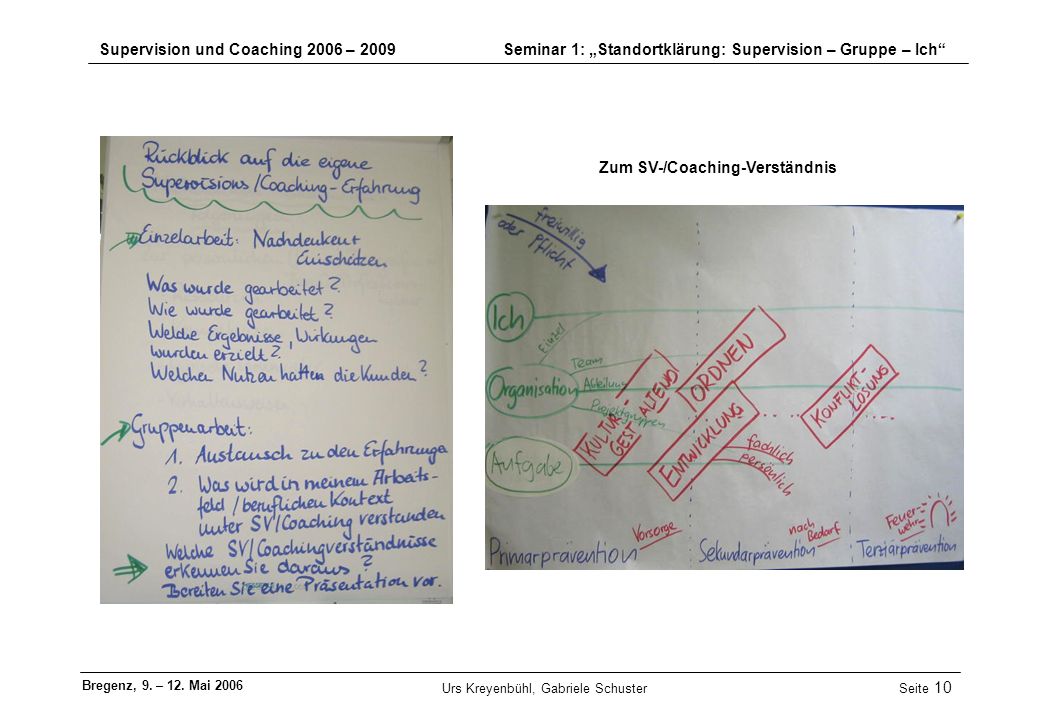 Supervision und Coaching 2006 – 2009
Seminar 1: „Standortklärung: Supervision – Gruppe – Ich“
Rückblick auf die eigene
Supervisions/Coaching-Erfahrung
Einzelarbeit: Nachdenken +
Einschätzen
Was wurde gearbeitet?
Wie wurde gearbeitet?
Welche Ergebnisse, Wirkungen
wurden erzielt?
Welchen Nutzen hatten die Kunden?
Gruppenarbeit:
1. Austausch zu den Erfahrungen
2. Was wird in meinem Arbeits-
feld / beruflichen Kontext
unter SV/Coaching verstanden
Welche SV/Coachingverständnisse
erkennen Sie daraus?
Bereiten Sie eine Präsentation vor.
Zum SV-/Coaching-Verständnis
freiwillig
oder Pflicht
Ich
Einzel
Organisation
Team
Abteilung
Projektgruppen
Aufgabe
KULTUR-
GEST ALTEND!
ORDNEN
ENTWICKLUNG
fachlich
persönlich
KONFLIKT-
LÖSUNG
Primärprävention
Vorsorge
Sekundärprävention
nach
Bedarf
Tertiärprävention
Feuer-
wehr
Bregenz, 9. – 12. Mai 2006
Urs Kreyenbühl, Gabriele Schuster
Seite 10